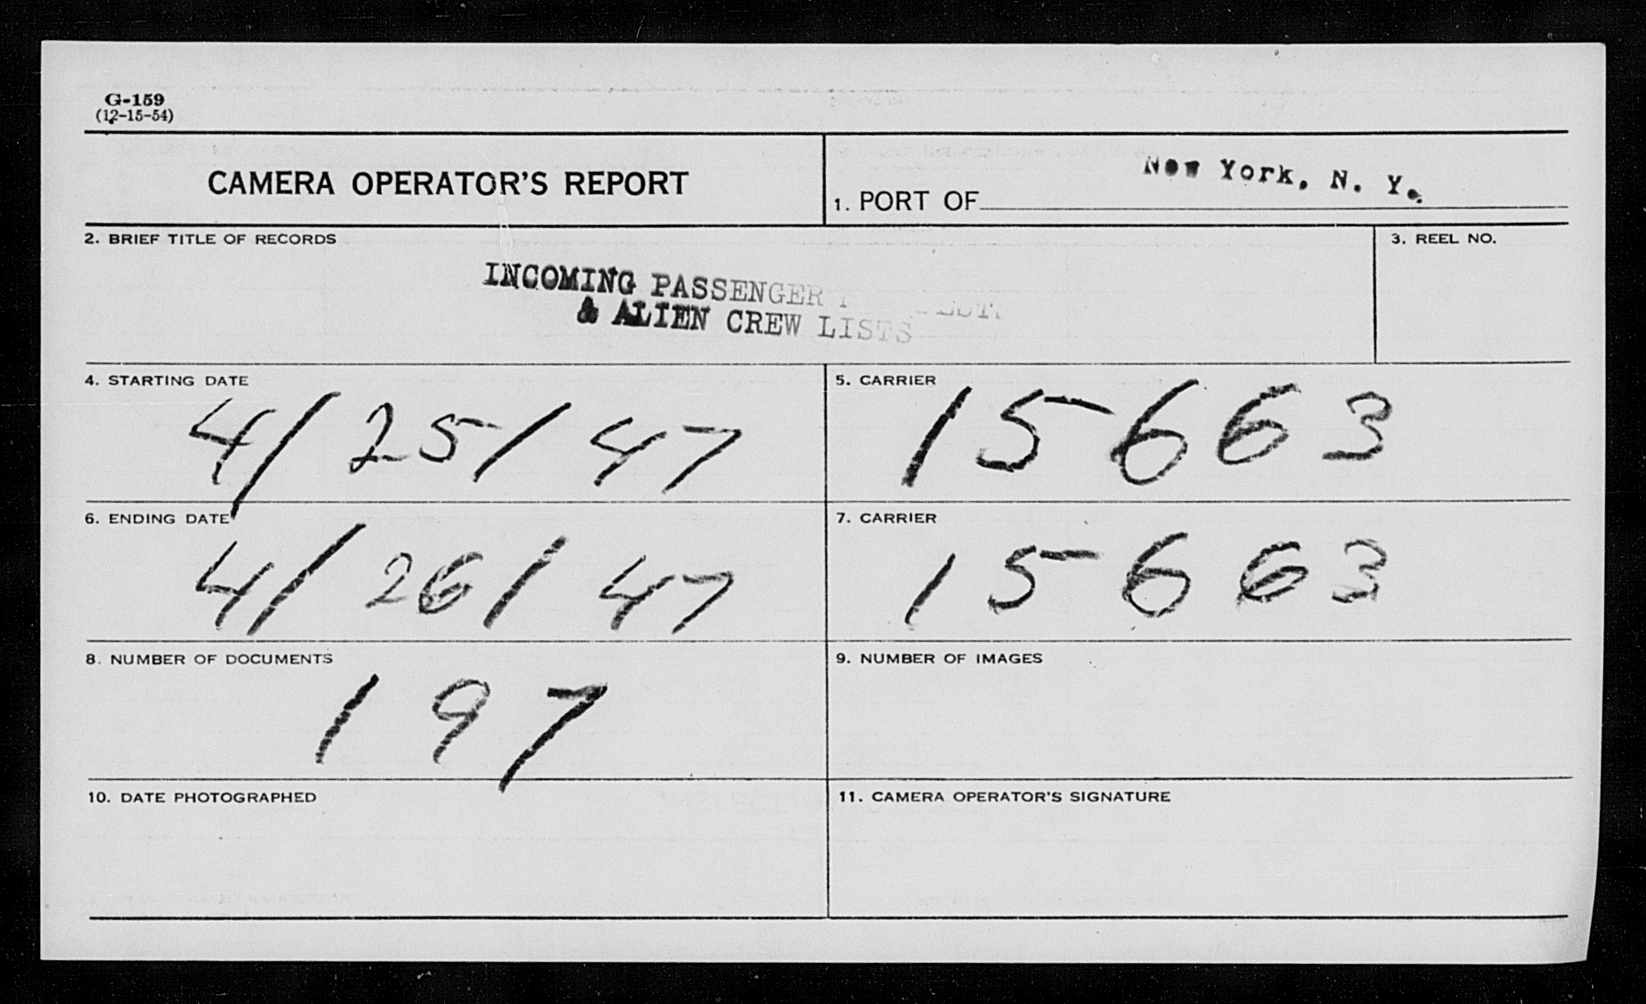 G-159
(12-15-54)
CAMERA OPERATOR'S REPORT
1. PORT OF New York, N. Y.
2. BRIEF TITLE OF RECORDS
3. REEL NO.
INCOMING PASSENGER
& ALIEN CREW LISTS
4. STARTING DATE
4/25/47
5. CARRIER
15663
6. ENDING DATE
4/26/47
7. CARRIER
15663
8. NUMBER OF DOCUMENTS
197
9. NUMBER OF IMAGES
10. DATE PHOTOGRAPHED
11. CAMERA OPERATOR'S SIGNATURE